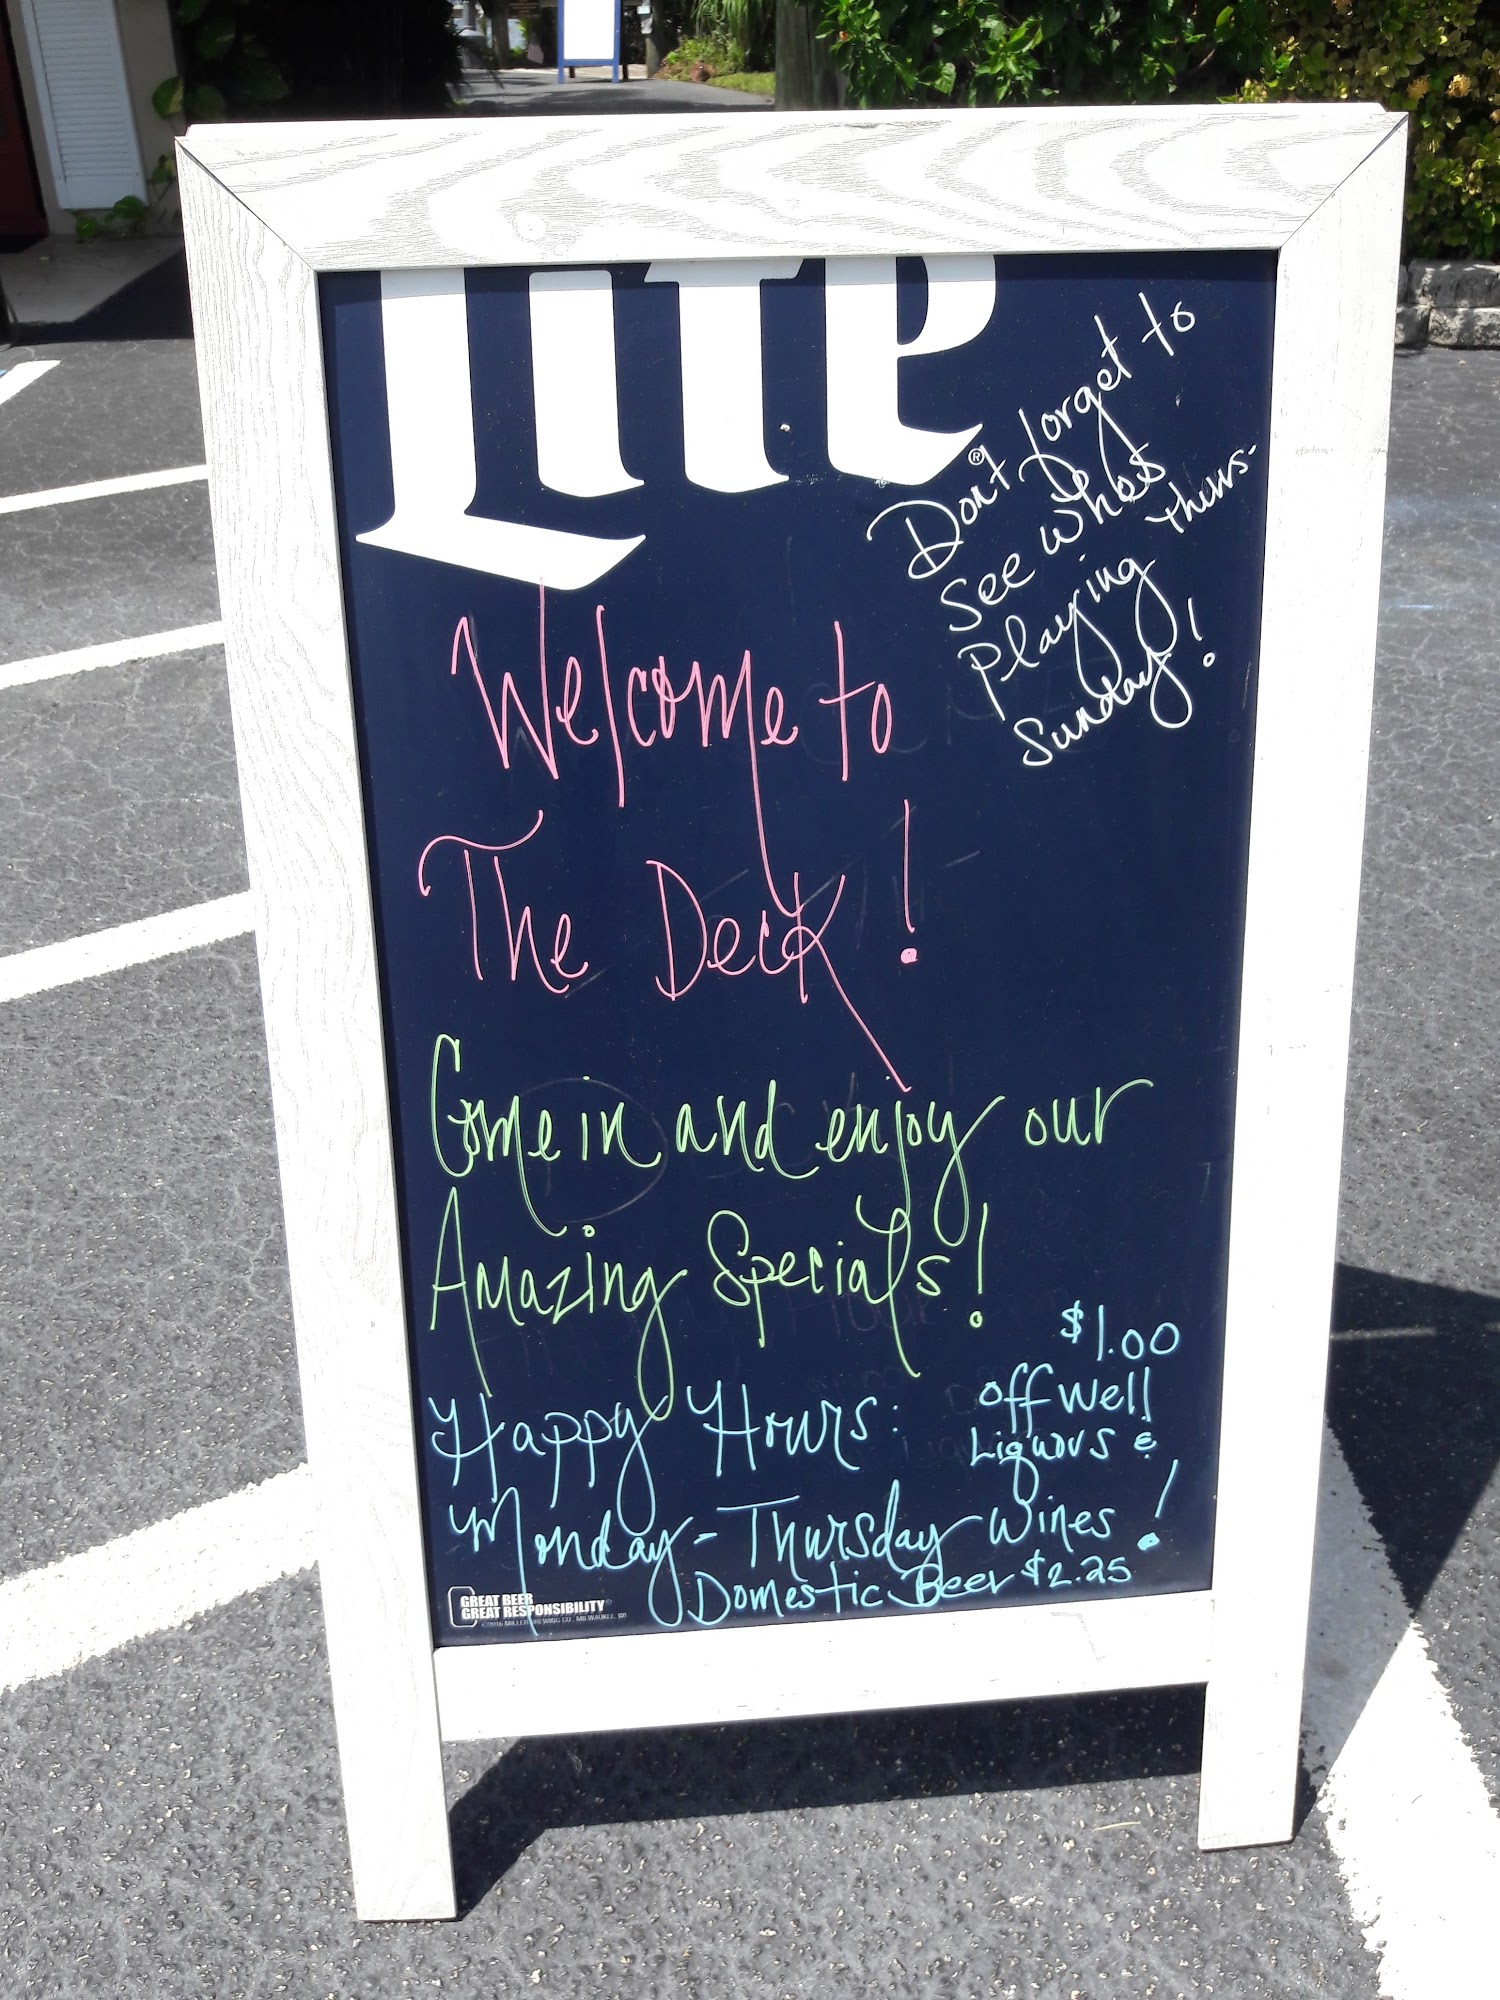 Lite
®
Don't forget to
See Whos
Playing Thurs-
Sunday!
Welcome to
The Deck!
Come in and enjoy our
Amazing Specials!
Happy Hours:
Monday - Thursday
$1.00
off Well
Liquors &
Wines!
Domestic Beer $2.25
GREAT BEER
GREAT RESPONSIBILITY®
©2016 MILLER BREWING CO., MILWAUKEE, WI